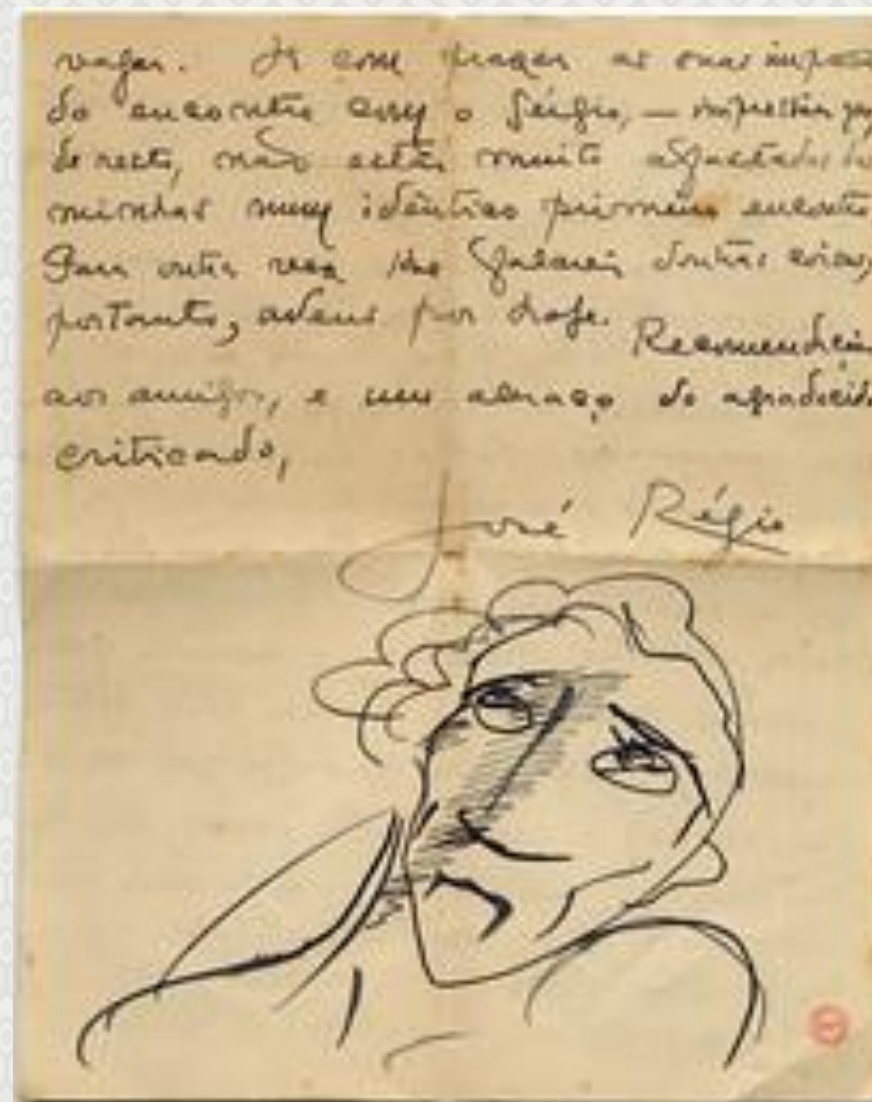 vagar. Li com prazer as suas impres
do encontro com o Sérgio, — impressões que,
de resto, não estão muito afastadas das
minhas num idêntico primeiro encontro
Para outra vez lhe falarei doutras coisas,
portanto, adeus por hoje.
Recomendações
aos amigos, e um abraço do agradecido
criticado,
José Régio